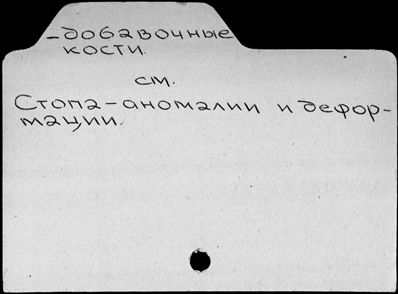 –добавочные
кости.
см.
Стопа–аномалии и дефор-
мации.